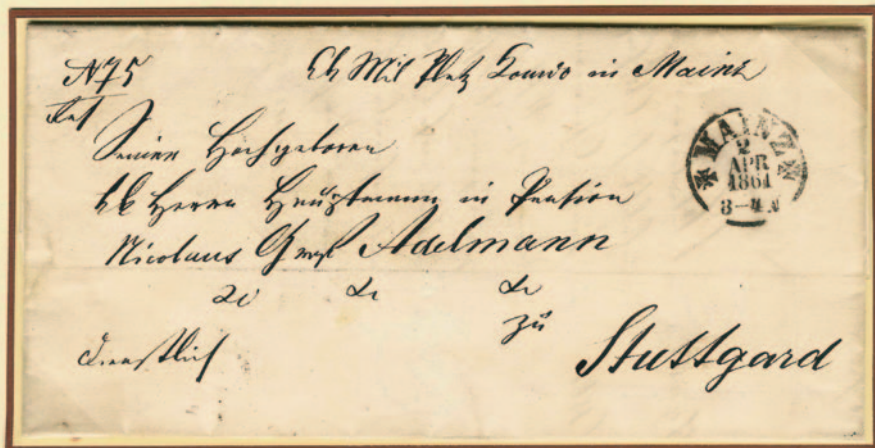 N75
kk Mil Platz Comdo in Mainz
Seiner Hochgeboren
kk Herrn Hauptmann in Pension
Nicolaus Graf Adelmann
zu
Stuttgard
Dienstlich
MAINZ
2
APR
1861
3-4 N